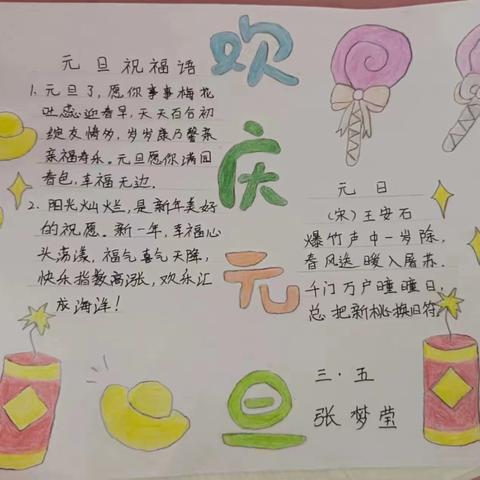 欢
庆
元
旦
元旦祝福语
1. 元旦了,愿你事事梅花
吐蕊迎春早,天天百合初
绽友情夯,岁岁康乃馨茶
亲福寿乐。元旦愿你满园
春色,幸福无边.
2. 阳光灿烂,是新年美好
的祝愿。新一年,幸福心
头荡漾,福气喜气天降,
快乐指数高涨,欢乐汇
成海洋!
元日
(宋)王安石
爆竹声中一岁除,
春风送暖入屠苏.
千门万户曈曈日,
总把新桃换旧符.
三.五
张梦莹